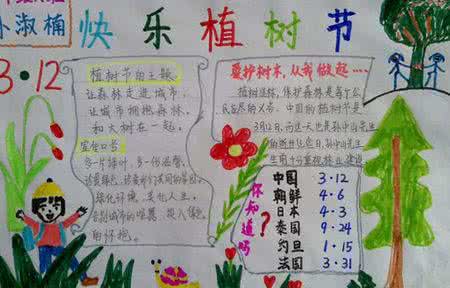 小淑楠
快乐植树节
3·12
植树节的主题
让森林走进城市，
让城市拥抱森林，
和大树在一起。
宣传口号
多一片绿叶，多一份温馨，
绿化环境，美化人生。
告别城市的喧嚣，投入绿色
的怀抱。
爱护树木，从我做起……
植树造林，保护森林是每个公
民应尽的义务，中国的植树节是
3月12日，而这一天也是孙中山先生
的逝世纪念日，孙中山先生
生前十分重视林业建设
你知道吗？
中国 3·12
朝鲜 4·6
日本 4·3
泰国 9·24
约旦 1·15
法国 3·31